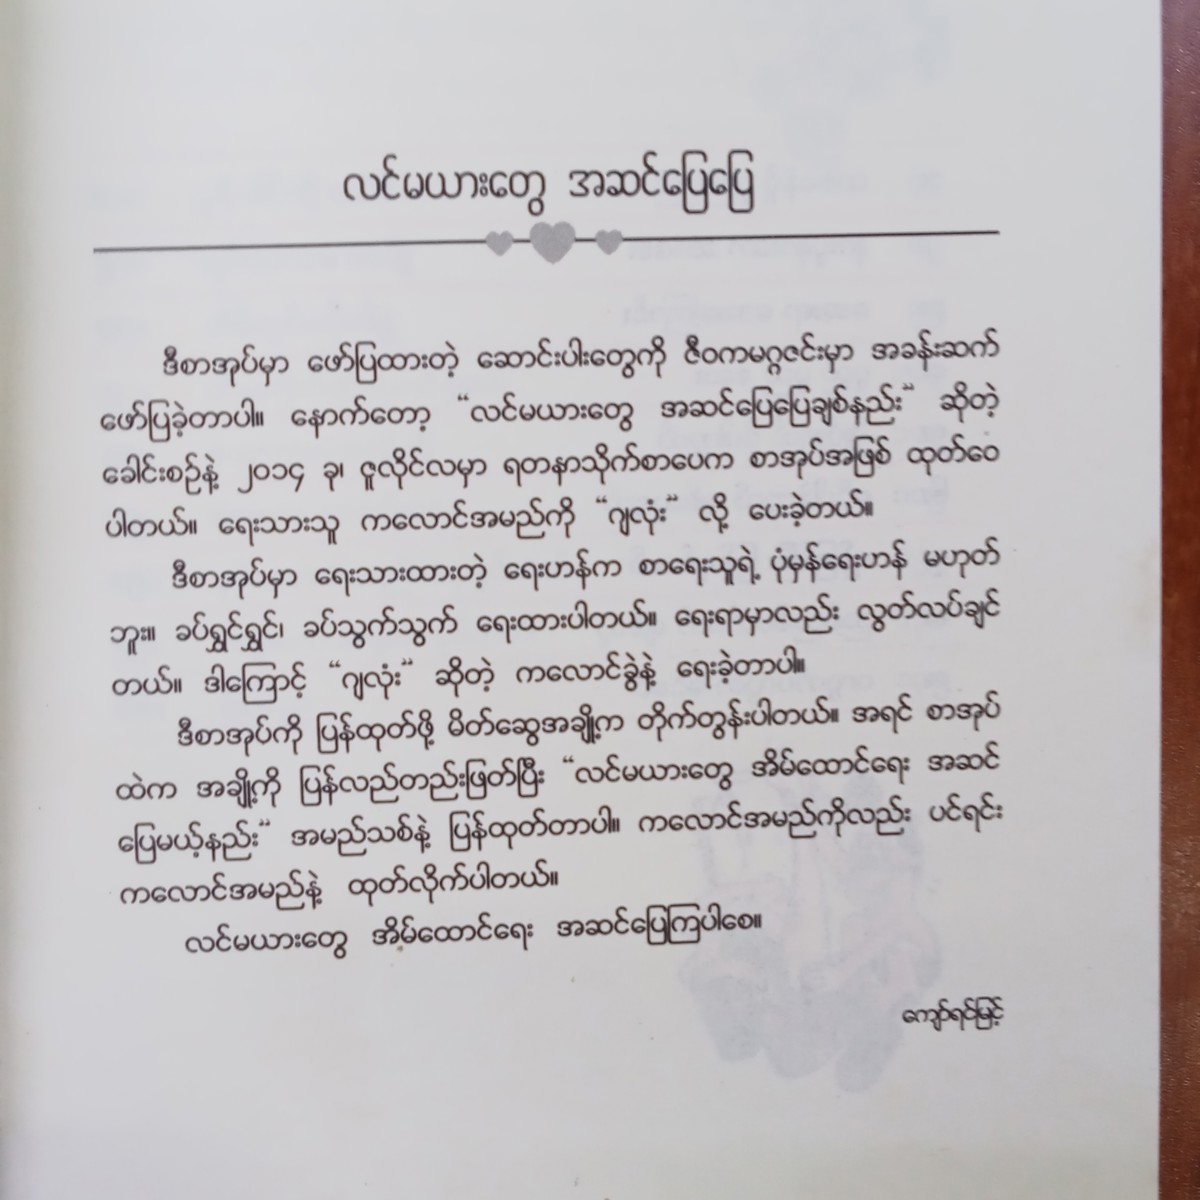 လင်မယားတွေ အဆင်ပြေပြေ
ဒီစာအုပ်မှာ ဖော်ပြထားတဲ့ ဆောင်းပါးတွေကို ဇီဝကမဂ္ဂဇင်းမှာ အခန်းဆက်
ဖော်ပြခဲ့တာပါ။ နောက်တော့ “လင်မယားတွေ အဆင်ပြေပြေချစ်နည်း” ဆိုတဲ့
ခေါင်းစဉ်နဲ့ ၂၀၁၄ ခု၊ ဇူလိုင်လမှာ ရတနာသိုက်စာပေက စာအုပ်အဖြစ် ထုတ်ဝေ
ပါတယ်။ ရေးသားသူ ကလောင်အမည်ကို “ဂျလုံး” လို့ ပေးခဲ့တယ်။
ဒီစာအုပ်မှာ ရေးသားထားတဲ့ ရေးဟန်က စာရေးသူရဲ့ ပုံမှန်ရေးဟန် မဟုတ်
ဘူး။ ခပ်ရွှင်ရွှင်၊ ခပ်သွက်သွက် ရေးထားပါတယ်။ ရေးရာမှာလည်း လွတ်လပ်ချင်
တယ်။ ဒါကြောင့် “ဂျလုံး” ဆိုတဲ့ ကလောင်ခွဲနဲ့ ရေးခဲ့တာပါ။
ဒီစာအုပ်ကို ပြန်ထုတ်ဖို့ မိတ်ဆွေအချို့က တိုက်တွန်းပါတယ်။ အရင် စာအုပ်
ထဲက အချို့ကို ပြန်လည်တည်းဖြတ်ပြီး “လင်မယားတွေ အိမ်ထောင်ရေး အဆင်
ပြေမယ့်နည်း” အမည်သစ်နဲ့ ပြန်ထုတ်တာပါ။ ကလောင်အမည်ကိုလည်း ပင်ရင်း
ကလောင်အမည်နဲ့ ထုတ်လိုက်ပါတယ်။
လင်မယားတွေ အိမ်ထောင်ရေး အဆင်ပြေကြပါစေ။
ကျော်ရင်မြင့်